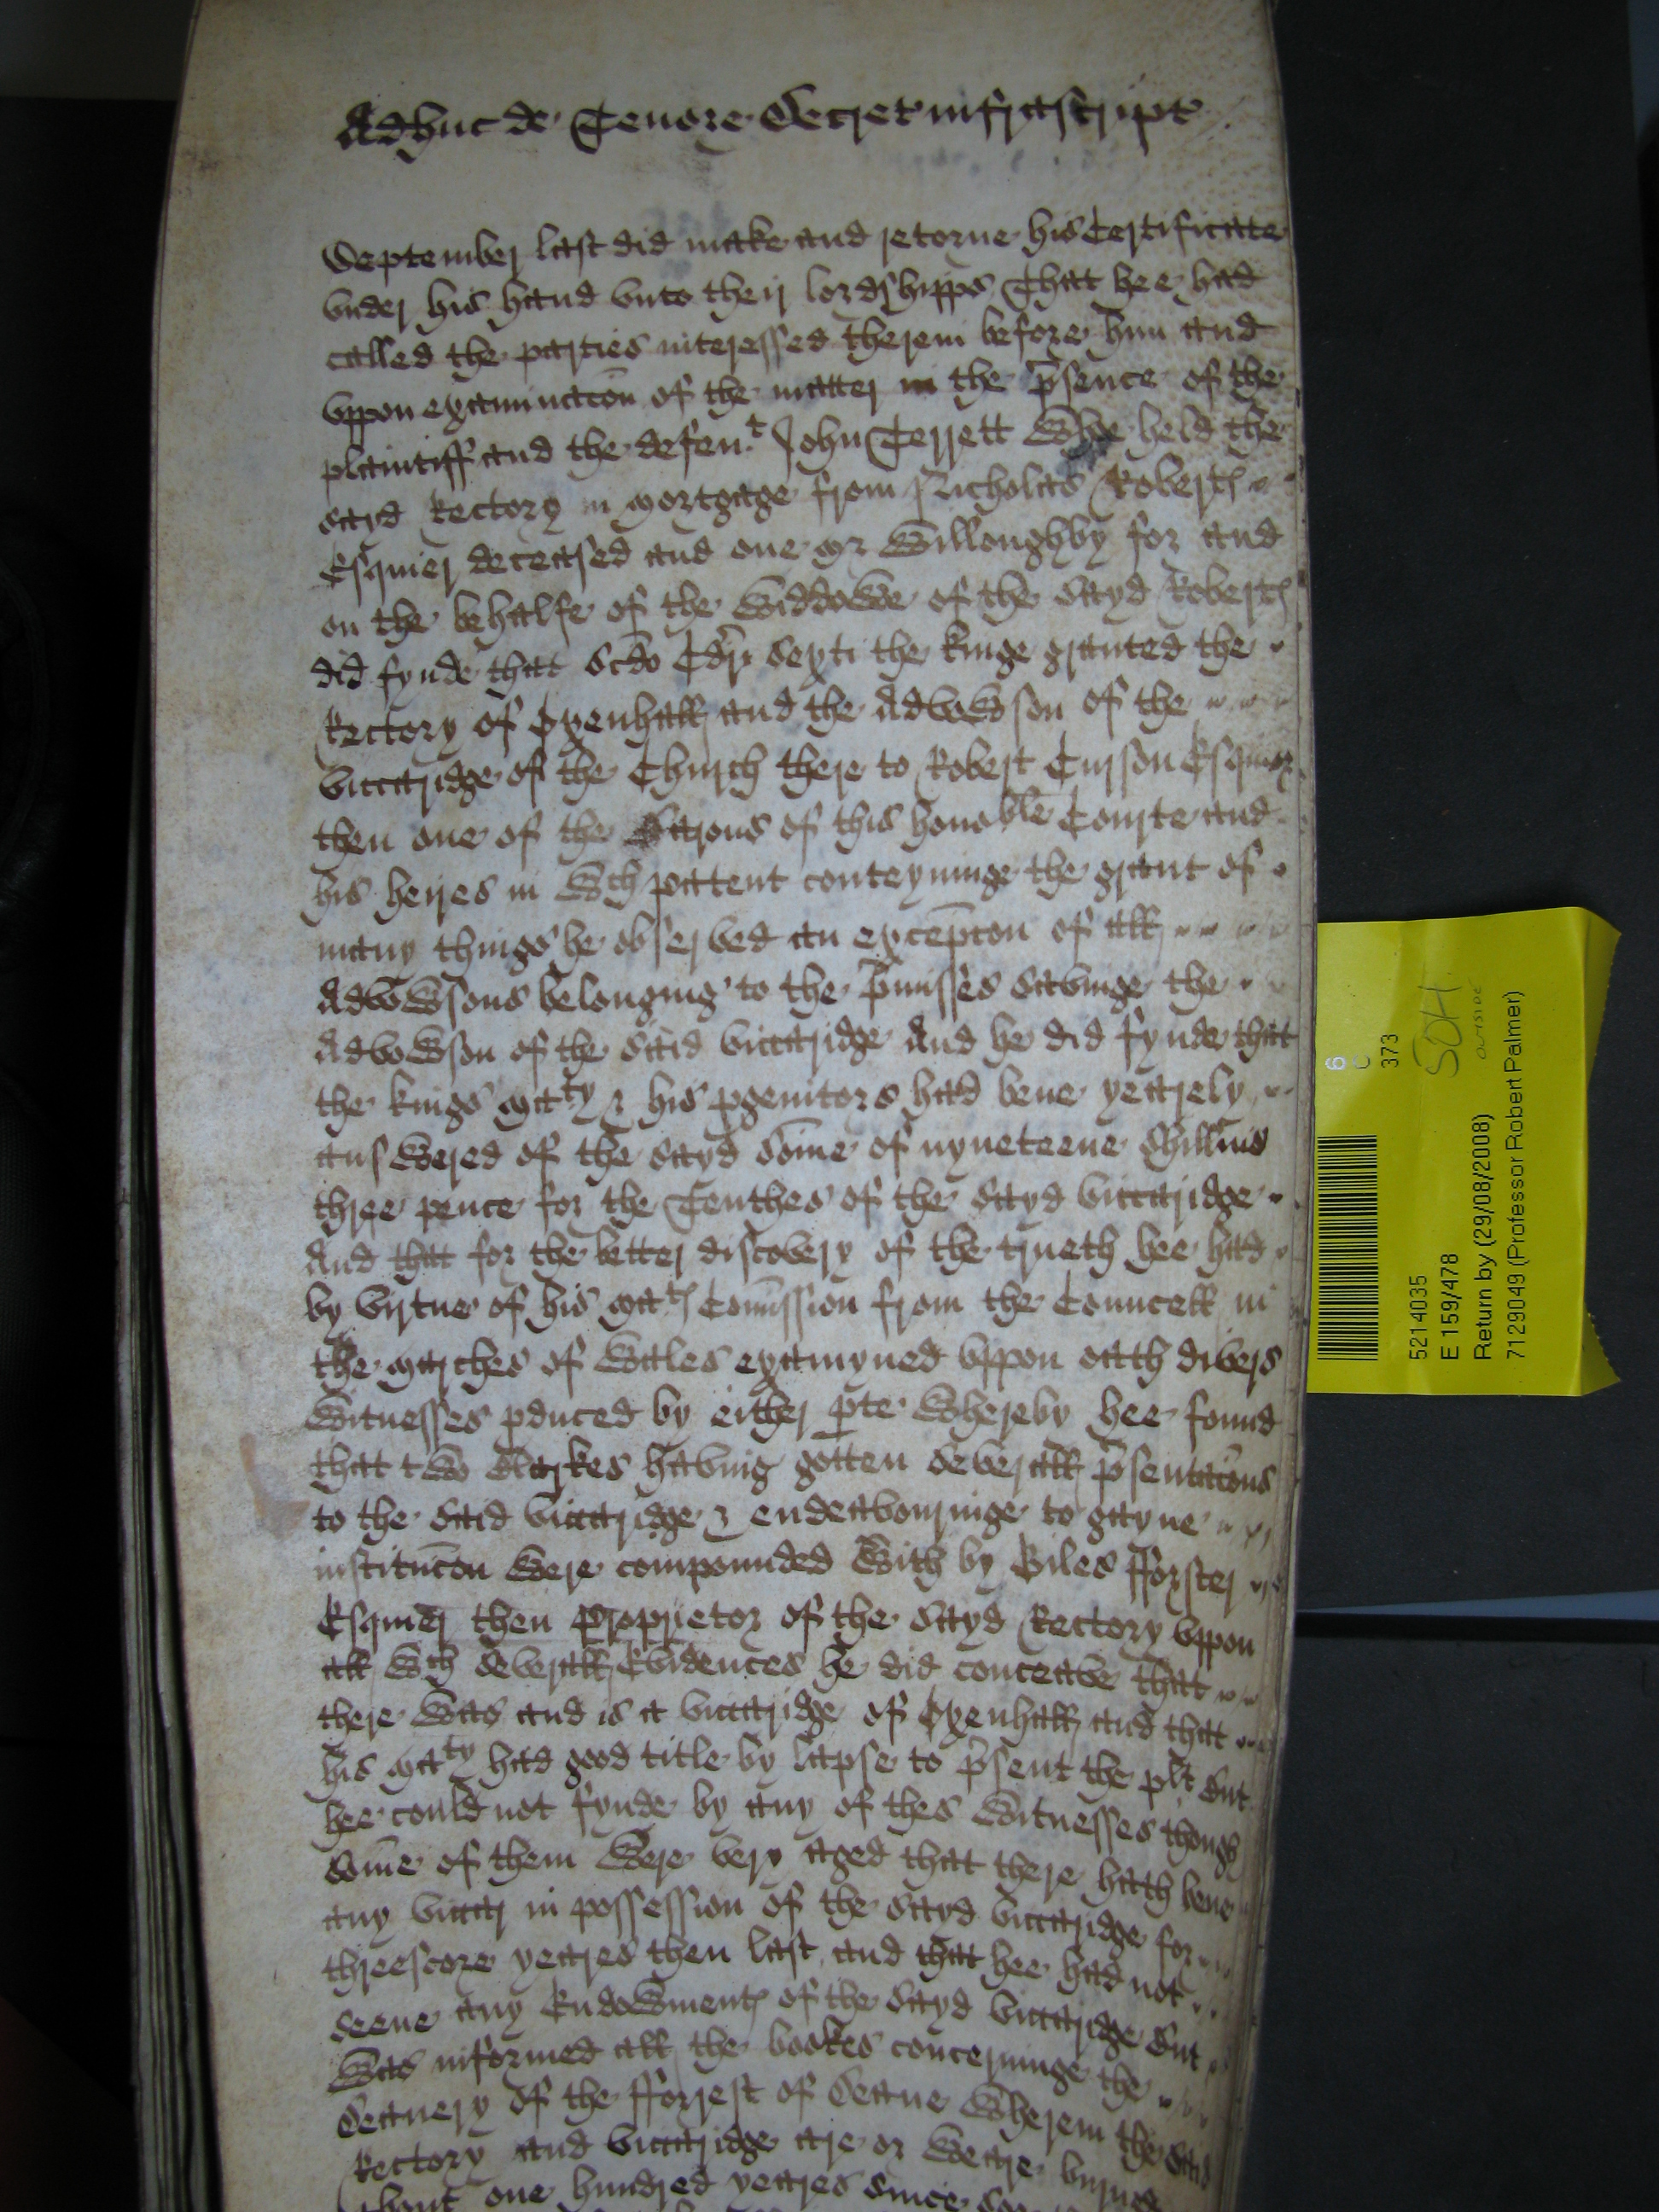 Adhuc de Tenore Decret infrascript
September last did make and retorne his Certificatte
vnder his hand vnto their lordshipps That hee had
called the parties interessed therein before him and
vppon examinacōn of the matter in the p̄sence of the
plaintiff and the defen.t John Terrett Whoe held the
sayd Rectory in mortgage from Nicholas Robert℮
Esquier deceased and one Mr Willoughby for and
on the behalfe of the Widdowe of the sayd Robert℮
did fynde that Scdo Edri Sexti the kinge graunted the
Rectory of Oxenhall and the Advowson of the
viccaridge of the Church there to Robert Curson Esquier
then one of the Barons of this honoble Courte and
his heires in Wch pattent conteyninge the graunt of
many things he observed an excepcōn of all
Advowsons belonging to the p̄misses savinge the
Advowson of the said viccaridge And he did fynde that
the kings Matty & his pgenitors had bene yearely
answered of the sayd Som̄e of nyneteene shillins
three pence for the Tenthes of the sayd viccaridge
And that for the better discovery of the trueth hee had
by virtue of his Mat℮ Com̄ission from the Councell in
the Marches of Wales examyned vppon oath divers
Witnesses pduced by either pte Whereby hee found
that two Clarkes having gotten severall p̄sentacōns
to the said viccaridge & endeavouringe to gayne
institucōn Were compounded With by Giles fforster
Esquier then Proprietor of the sayd Rectory vppon
all Wch severall Evidences he did conceave that
there Was and is a viccaridge of Oxenhall and that
his Matty had good title by lapse to p̄sent the plt but
hee could not fynde by any of thes Witnesses though
som̄e of them Were very aged that there hath bene
any viccar in possession of the sayd viccaridge for
threescore yeares then last, and that hee had not
seene any Endowment℮ of the sayd viccaridge but
Was informed all the bookes concerninge the
Deanery of the fforrest of Deane Wherein the said
Rectory and viccaridge are or Weare
about one hundred yeares since
6
C
373
SOH
outside
5214035
E 159/478
Return by (29/08/2008)
7129049 (Professor Robert Palmer)